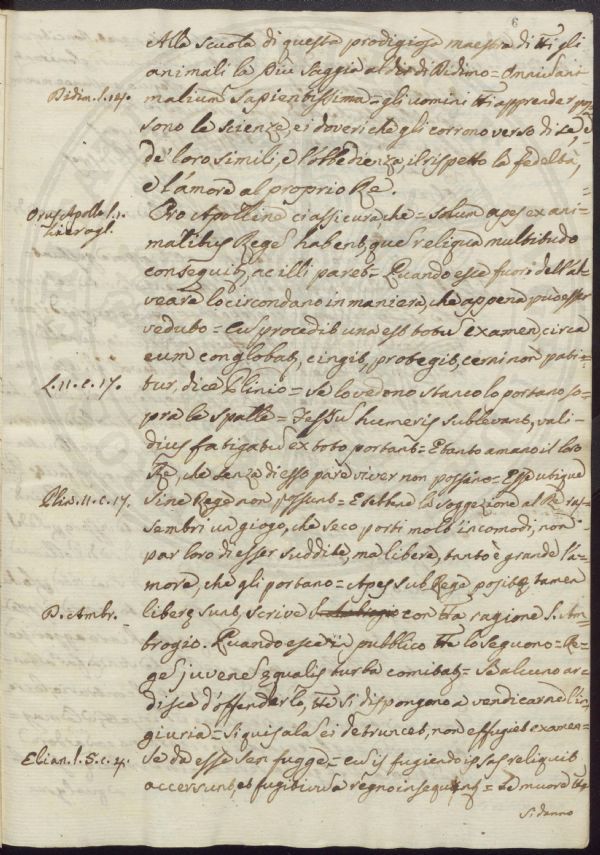 6
Alla scuola di questa prodigiosa maestra di tti gli
animali la più saggia al dir di Didimo = Omniũ ani
Didim. l. 15.
malium sapientissima = gli uomini tti apprender pos
sono le scienze, ei doveri che gli corrono verso di se, e
de' loro simili, e l'obbedienza, il rispetto la fedeltà,
e l'amore al proprio Re.
Orus Apollo l. 1.
hierogl.
Oro Apolline ci assicura che = solum apes ex ani-
malibus Regẽ habent, quẽ reliqua multitudo
consequit, ac illi paret = Quando esce fuori dell'al
veare lo circondano in maniera, che appena può esser
veduto = Cũ procedit una est totũ examen, circa
eum conglobat, cingit, protegit, cerni non pati=
L. 11. c. 17.
tur, dice Plinio = Se lo vedono stanco lo portano so-
pra le spalle = Fessũ humeris sublevant, vali-
dius fatigatũ ex toto portant = E tanto amano il loro
Re, che senza di esso pare viver non possano = Esse utique
Plin. 11. c. 17.
sine Rege non possunt = E sebbene la soggezione al Re ras
sembri un giogo, che seco porti molti incomodi, non
par loro di esser suddite, ma libere, tanto è grande l'a-
more, che gli portano = Apes sub Rege positę tamen
D. Ambr.
liberę sunt, scrive con tta ragione S. Am-
brogio. Quando esce in pubblico tte lo seguono = Re-
gẽ juvenẽ ęqualis turba comitat = Se alcuno ar-
disce d'offenderlo, tte si dispongono a vendicarne l'in
giuria = Si quis ala ei detruncet, non effugiet examen =
Elian. l. 5. c. 4.
Se da esse sen fugge = cũ is fugiendo ipsas reliquit
accersunt, et fugitivũ a regno insequunt = Se muore
si danno